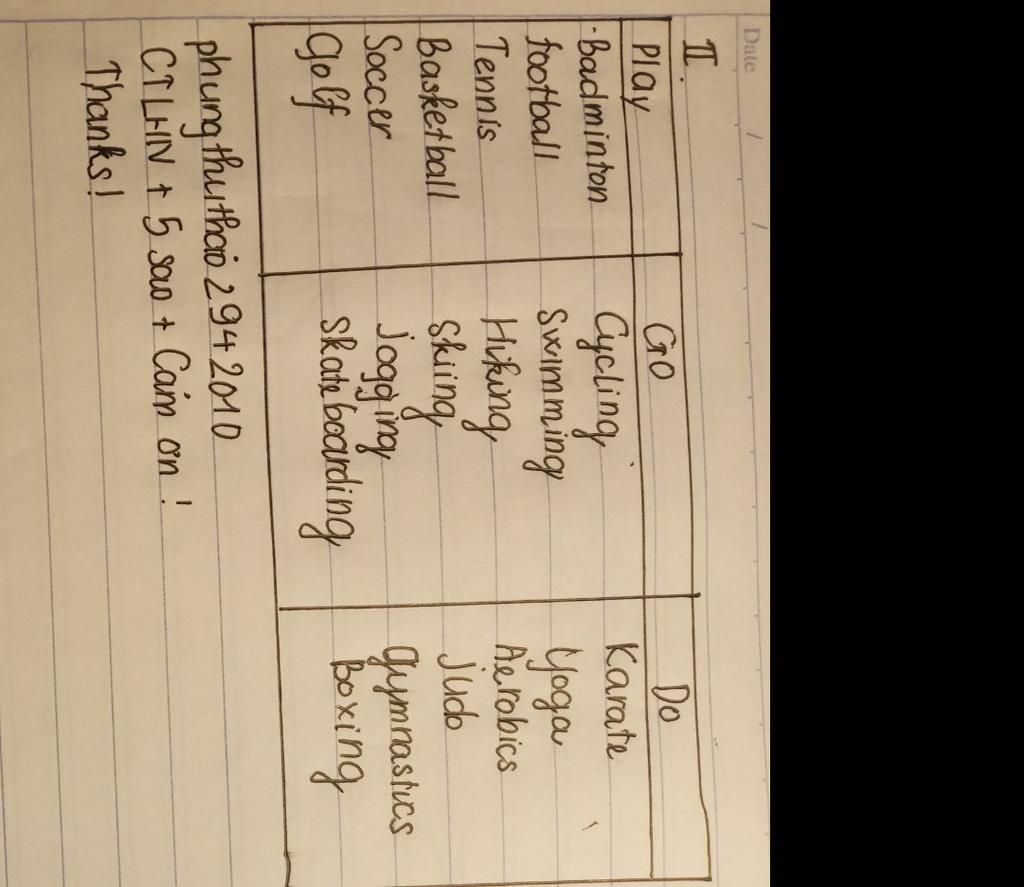 Date / /
II.
Play Go Do
·Badminton Cycling Karate
football Swimming Yoga
Tennis Hiking Aerobics
Basketball Skiing Judo
Soccer jogging Gymnastics
Golf Skateboarding Boxing
phungthuthao2942010
CTLHN + 5 sao + Cảm ơn!
Thanks!